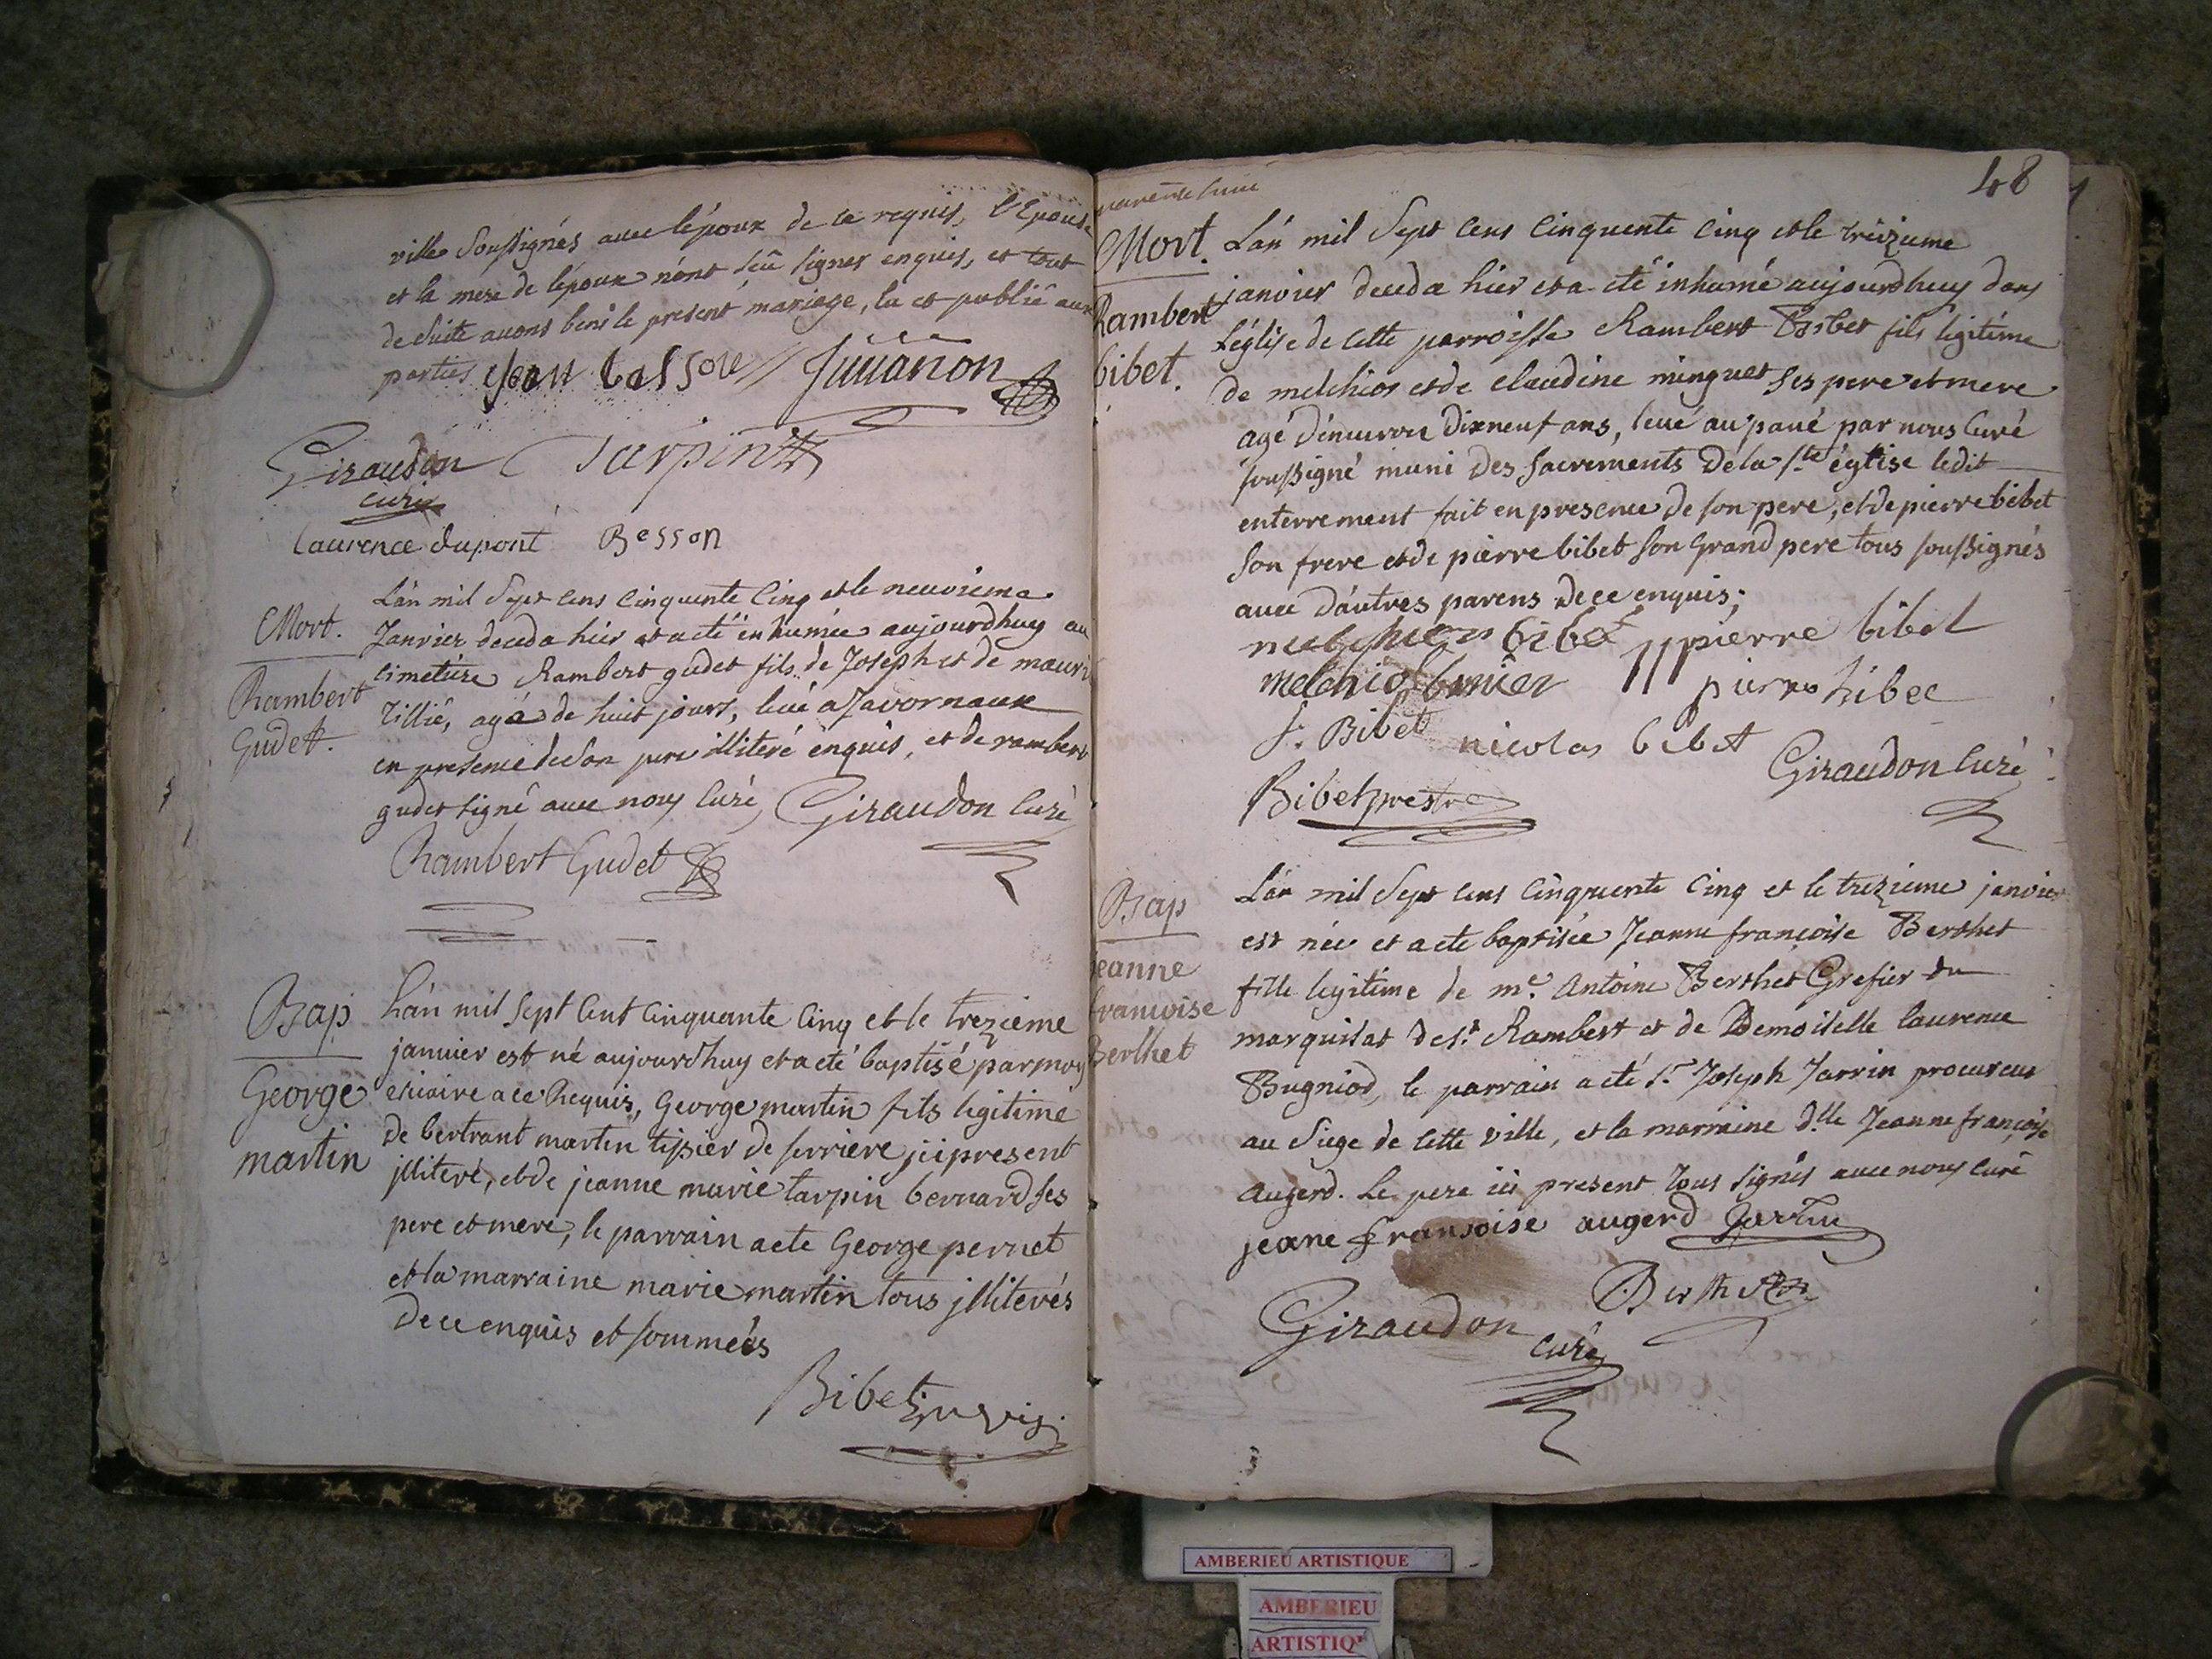 ville soussignés avec lépoux de ce requis, l'Epouse
et la mere de lépoux n'ont sceu signer enquis, et tout
de suite avons beni le present mariage, lu et publié aux
parties
Jean besson Juuanon
Giraudon Tarpin
curé
Laurence dupont Besson
Mort.
Rambert
Gudet.
L'an mil Sept cens cinquente cinq et le neuvieme
Janvier deceda hier et a eté inhumée aujourdhuy au
cimetiere Rambert gudet fils de Joseph et de
Tillié, agé de huit jours, levé a Javornaux
en presence de son pere illiteré enquis, et de rambert
gudet signé avec nous curé, Giraudon curé
Rambert Gudet
Bap
George
martin
L'an mil sept cent cinquante cinq et le trezieme
janvier est né aujourdhuy et a eté baptisé par moy
vicaire a ce Requis, George martin fils legitime
de bertrant martin tissier de serriere ici present
jlliteré, et de jeanne marie tarpin bernard ses
pere et mere, le parrain a eté George pernet
et la marraine marie martin tous jlliterés
de ce enquis et sommés
Bibet
48
Mort.
Rambert
bibet.
L'an mil Sept cens cinquente cinq et le treizieme
janvier deceda hier et a eté inhumé aujourdhuy dans
L'église de cette parroisse Rambert Bibet fils légitime
de melchior et de claudine minguet ses pere et mere
agé d'environ dixneuf ans, levé au pavé par nous Curé
soussigné muni des sacrements de la ste église ledit
enterrement fait en presence de son pere, et de pierre bibet
son frere et de pierre bibet son grand pere tous soussignés
avec d'autres parens de ce enquis;
melchior bibet pierre bibet
melchior pierre bibet
J. Bibet nicolas bibet Giraudon curé
Bibet prestre
Bap
jeanne
francoise
Berthet
L'an mil Sept cens cinquente cinq et le trezieme janvier
est née et a eté baptisée Jeanne françoise Berthet
fille legitime de me. Antoine Berthet Grefier du
marquisat de st. Rambert et de Demoiselle laurence
Bugniod, le parrain a eté sr. Joseph Jarrin procureur
au siege de cette ville, et la marraine dlle Jeanne françoise
augerd. Le pere ici present tous signés avec nous curé
jeane fransoise augerd Jarrin
Berthet
Giraudon
curé
AMBERIEU ARTISTIQUE
AMBERIEU
ARTISTIQ